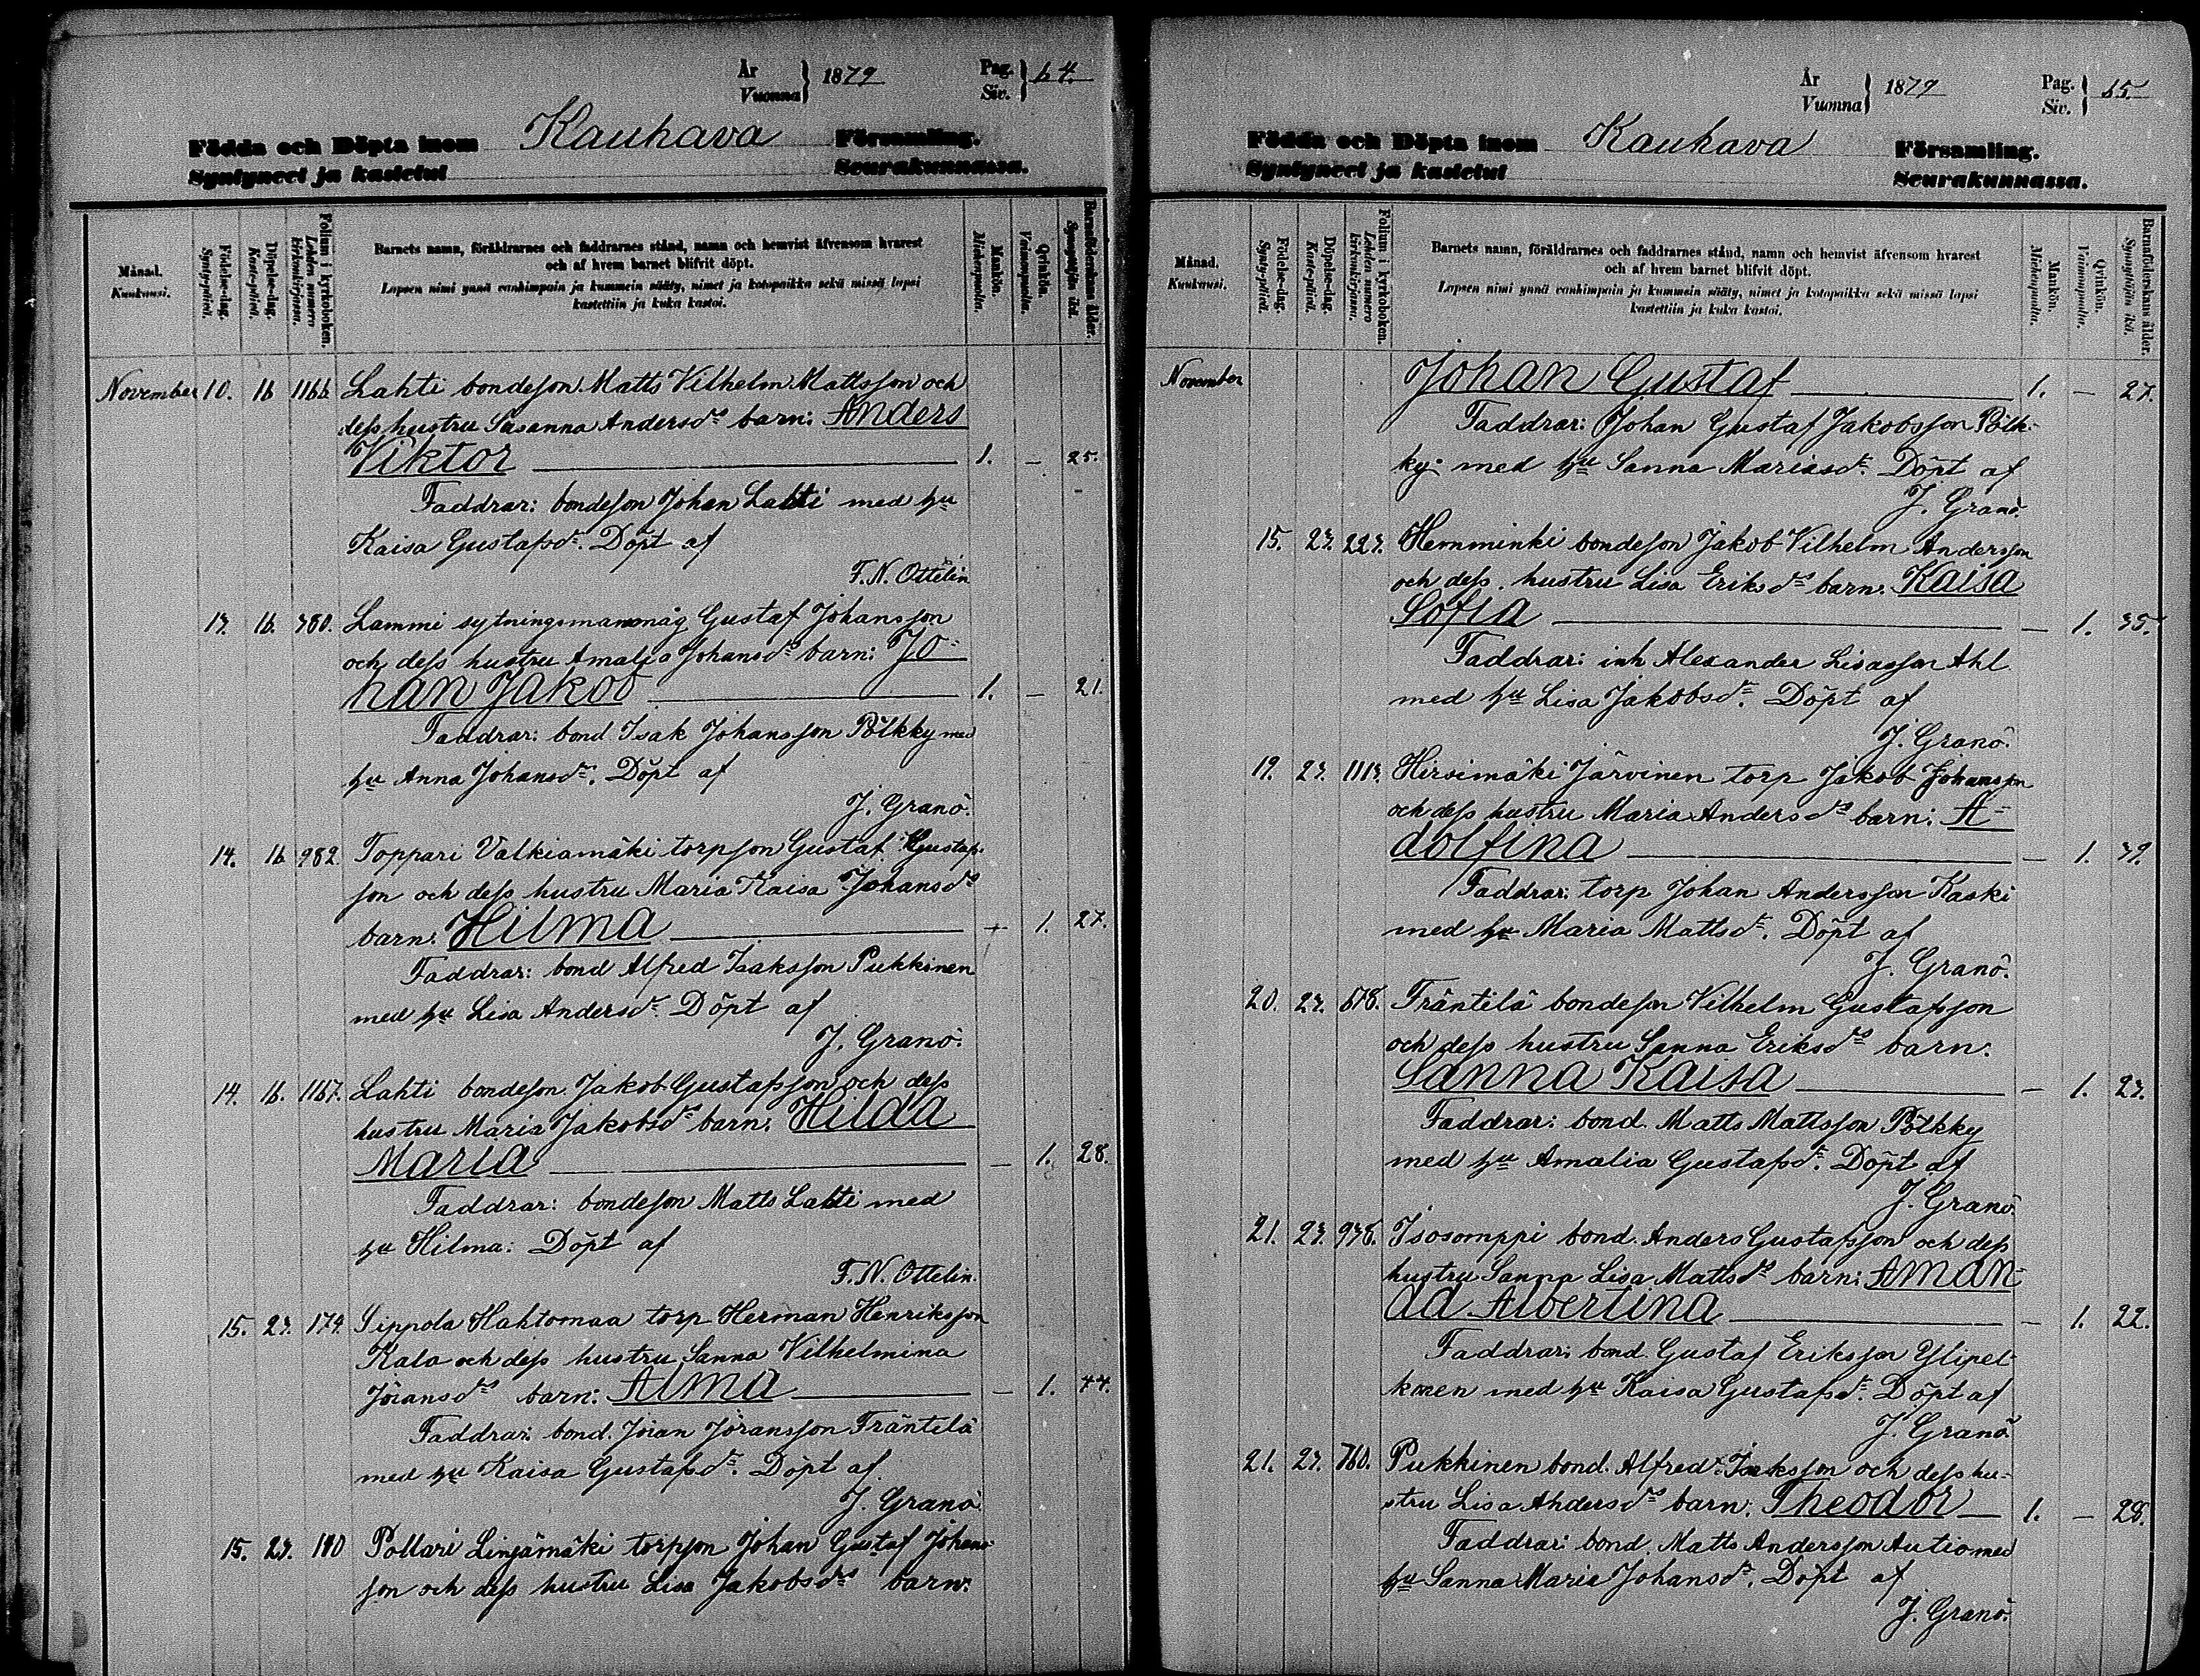 År
Vuonna } 1879
Pag.
Siv. } 64.
Födda och Döpta inom Kauhava Församling.
Syntyneet ja kastetut Seurakunnassa.
Månad.
Kuukausi.
Födelse-dag.
Synty-päivä.
Döpelse-dag.
Kaste-päivä.
Folium i kyrkoboken.
Lehden numero kirkonkirjassa.
Barnets namn, föräldrarnes och faddrarnes stånd, namn och hemvist äfvensom hvarest
och af hvem barnet blifvit döpt.
Lapsen nimi ynnä vanhimpain ja kummein sääty, nimet ja kotopaikka sekä missä lapsi
kastettiin ja kuka kastoi.
Mankön.
Miehenpuolta.
Qvinkön.
Vaimonpuolta.
Barnaföderskans ålder.
Synnyttäjän ikä.
November 10. 16 1166. Lahti bondeson Matts Vilhelm Mattsson och
dess hustru Susanna Andersds barn: Anders
Viktor 1. — 25.
Faddrar: bondeson Johan Lahti med hu
Kaisa Gustafsdr. Döpt af
F. N. Ottelin
13. 16. 380. Lammi sytningsmansmåg Gustaf Johansson
och dess hustru Amalia Johansds barn: Jo-
han Jakob 1. — 21.
Faddrar: bond Isak Johansson Pölkky med
hu Anna Johansdr. Döpt af
J. Granö.
14. 16 982. Toppari Valkiamäki torpson Gustaf Gustafs-
son och dess hustru Maria Kaisa Johansds
barn: Hilma — 1. 27.
Faddrar: bond Alfred Isaksson Pukkinen
med hu Lisa Andersdr. Döpt af
J. Granö.
14. 16. 1167. Lahti bondeson Jakob Gustafsson och dess
hustru Maria Jakobsds barn: Hilda
Maria — 1. 28.
Faddrar: bondeson Matts Lahti med
hu Hilma: Döpt af
F. N. Ottelin.
15. 23. 174. Sippola Hahtomaa torp Herman Henriksson
Kala och dess hustru Sanna Vilhelmina
Jöransds barn: Alma — 1. 44.
Faddrar: bond. Jöran Jöransson Fräntilä
med hu Kaisa Gustafsdr. Döpt af
J. Granö
15. 23. 140 Pollari Linjamäki torpson Johan Gustaf Johans-
son och dess hustru Lisa Jakobsds barn:
År
Vuonna } 1879
Pag.
Siv. } 65.
Födda och Döpta inom Kauhava Församling.
Syntyneet ja kastetut Seurakunnassa.
Månad.
Kuukausi.
Födelse-dag.
Synty-päivä.
Döpelse-dag.
Kaste-päivä.
Folium i kyrkoboken.
Lehden numero kirkonkirjassa.
Barnets namn, föräldrarnes och faddrarnes stånd, namn och hemvist äfvensom hvarest
och af hvem barnet blifvit döpt.
Lapsen nimi ynnä vanhimpain ja kummein sääty, nimet ja kotopaikka sekä missä lapsi
kastettiin ja kuka kastoi.
Mankön.
Miehenpuolta.
Qvinkön.
Vaimonpuolta.
Barnaföderskans ålder.
Synnyttäjän ikä.
November Johan Gustaf 1. — 27.
Faddrar: Johan Gustaf Jakobsson Pölk-
ky med hu Sanna Mariasdr. Döpt af
J. Granö.
15. 23. 223. Hemminki bondeson Jakob Vilhelm Andersson
och dess hustru Lisa Eriksds barn: Kaisa
Sofia — 1. 35.
Faddrar: inh Alexander Lisasson Ahl
med hu Lisa Jakobsdr. Döpt af
J. Granö.
19. 23. 1113. Hirsimäki Järvinen torp Jakob Johansson
och dess hustru Maria Andersds barn: A-
dolfina — 1. 39.
Faddrar: torp Johan Andersson Kaski
med hu Maria Mattsdr. Döpt af
J. Granö.
20. 23. 678. Fräntilä bondeson Vilhelm Gustafsson
och dess hustru Sanna Eriksds barn:
Sanna Kaisa — 1. 23.
Faddrar: bond. Matts Mattsson Pölkky
med hu Amalia Gustafsdr. Döpt af
J. Granö.
21. 23. 938. Isosomppi bond. Anders Gustafsson och dess
hustru Sanna Lisa Mattsds barn: Aman-
da Albertina — 1. 22.
Faddrar: bond. Gustaf Eriksson Ylipel-
konen med hu Kaisa Gustafsdr. Döpt af
J. Granö
21. 23. 760. Pukkinen bond. Alfred Isaksson och dess hu-
stru Lisa Andersds barn: Theodor 1. — 28.
Faddrar: bond. Matts Andersson Autio med
hu Sanna Maria Johansdr. Döpt af
J. Granö.